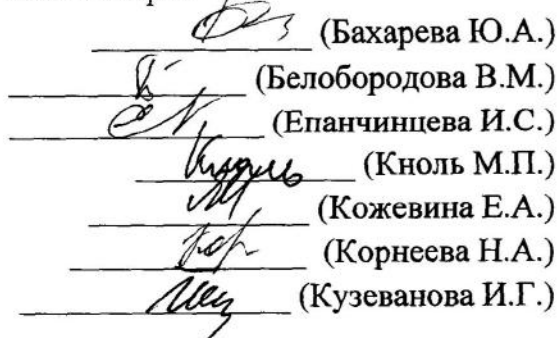 (Бахарева Ю.А.)
(Белобородова В.М.)
(Епанчинцева И.С.)
(Кноль М.П.)
(Кожевина Е.А.)
(Корнеева Н.А.)
(Кузеванова И.Г.)